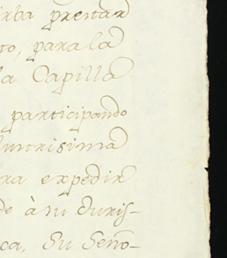 rba prestar
to, para la
la Capilla
participando
lustrisima
ra expedir
de à su Juris-
ca, Su Seño-